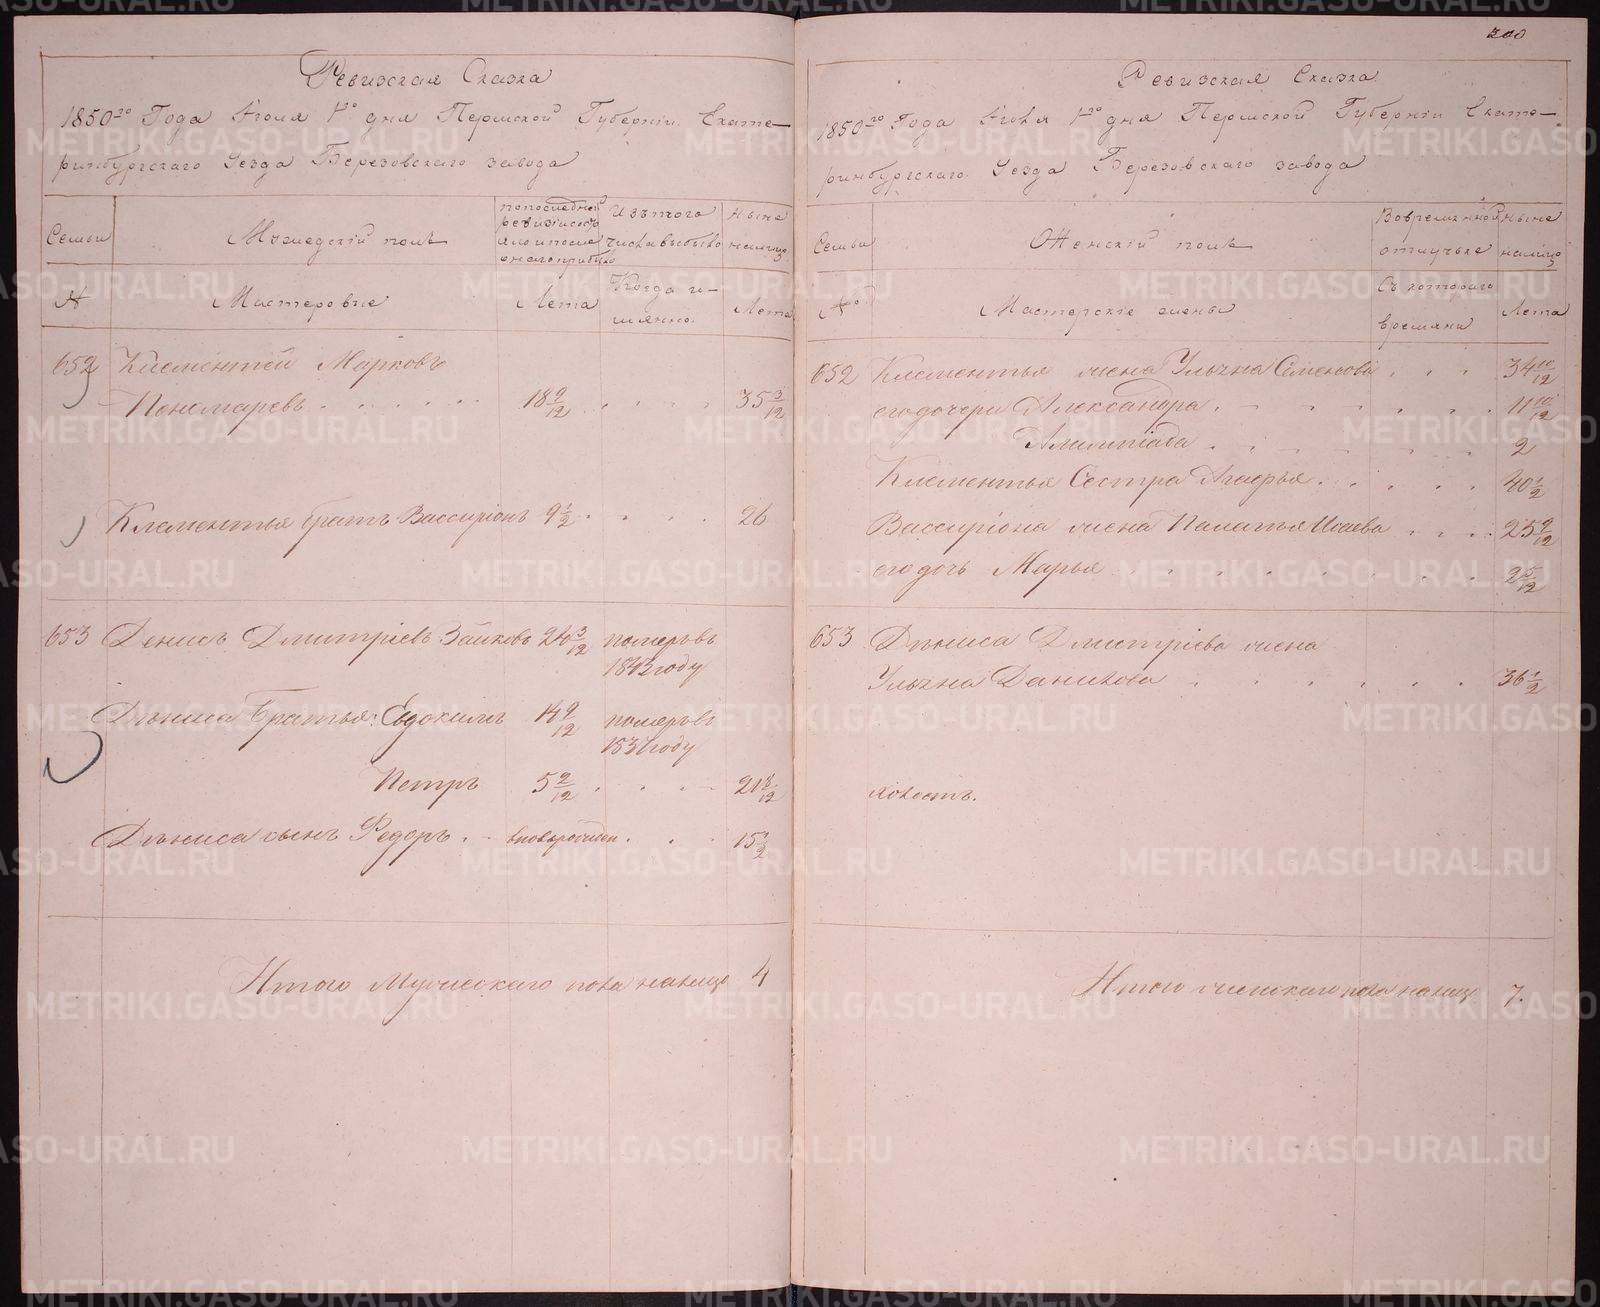 Ревизская Сказка
1850го Года Іюля 1го дня Пермской Губерніи Екате–
ринбургскаго Уезда Березовскаго завода
Семьи
Мужедскій полъ
Изътого
числа выбыло
Ныне
налицо
Мастеровые
Лета
Когда и–
мянно.
Лета
652 Клементей Марковъ
Пономаревъ . . . . . . 18 9/12 . . . . 35 3/12
Клементья братъ Вассиріонъ 9 1/2 . . . . 26
653 Денисъ Дмитріевъ Зайковъ 24 3/12 померъ въ
1843 году
Дениса Братья: Евдокимъ 14 9/12 померъ въ
1837 году
Петръ 5 2/12 . . . . 21 8/12
Дениса сынъ Федоръ . . вновь рожден . . . 15 1/2
Итого Мужескаго пола налицо 4
200
Ревизская Сказка
1850го Года Іюля 1го дня Пермской Губерніи Екате–
ринбургскаго Уезда Березовскаго завода
Семьи
Женскій полъ
Вовременной
отлучьке
Ныне
налицо
№
Мастерскіе жены
Съ котораго
времяни
Лета
652 Клементья жена Ульяна Семенова . . . 34 10/12
егодочери Александра . . . . . . . 11 10/12
Алимпіада . . . . . . 2
Клементья Сестра Агафья . . . . . 40 1/2
Вассиріона жена Палагья Исаева . . . . 25 9/12
егодочь Марья . . . . . . . 2 5/12
653 Дениса Дмитріева жена
Ульяна Данилова . . . . . . 36 1/2
Итого женскаго пола налицо 7.
METRIKI.GASO-URAL.RU